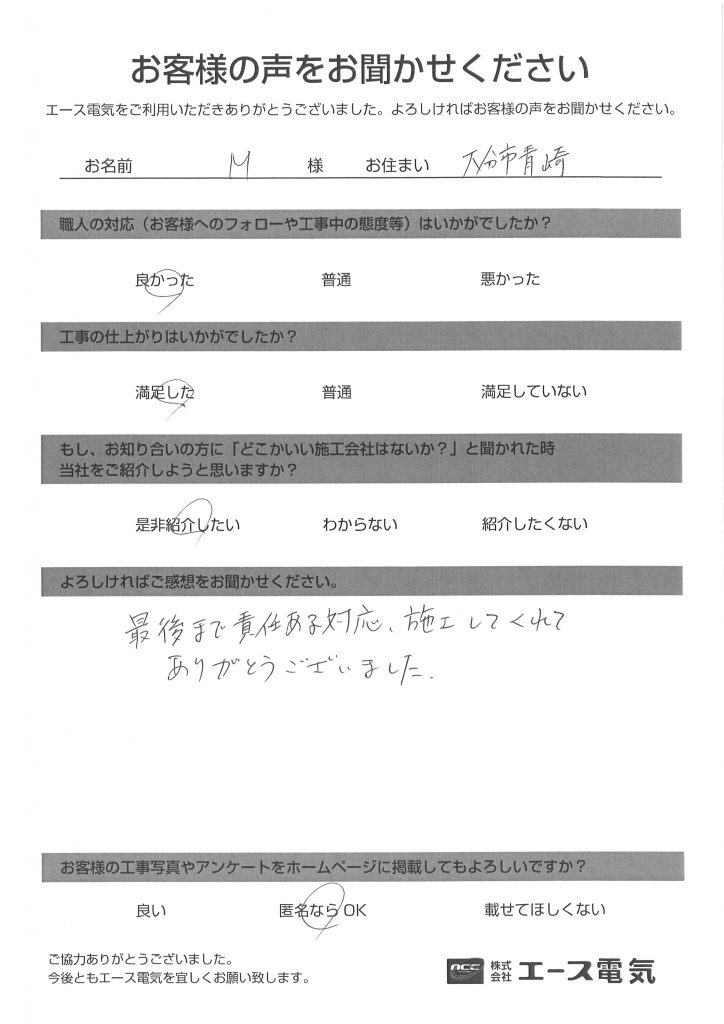 お客様の声をお聞かせください
エース電気をご利用いただきありがとうございました。よろしければお客様の声をお聞かせください。
お名前 M 様 お住まい 大分市青崎
職人の対応（お客様へのフォローや工事中の態度等）はいかがでしたか？
良かった 普通 悪かった
工事の仕上がりはいかがでしたか？
満足した 普通 満足していない
もし、お知り合いの方に「どこかいい施工会社はないか？」と聞かれた時
当社をご紹介しようと思いますか？
是非紹介したい わからない 紹介したくない
よろしければご感想をお聞かせください。
最後まで責任ある対応、施工してくれて
ありがとうございました.
お客様の工事写真やアンケートをホームページに掲載してもよろしいですか？
良い 匿名なら OK 載せてほしくない
ご協力ありがとうございました。
今後ともエース電気を宜しくお願い致します。
ACC 株式会社 エース電気